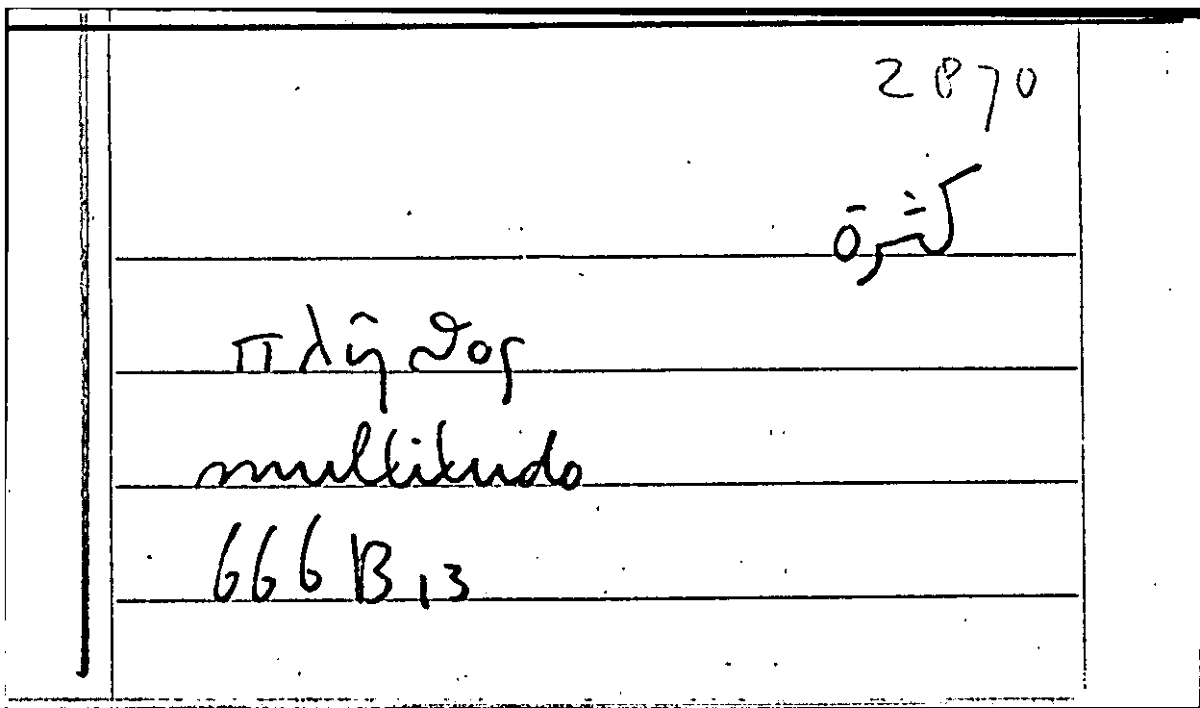 2870
كثرة
πλῆθος
multitudo
666 B 13